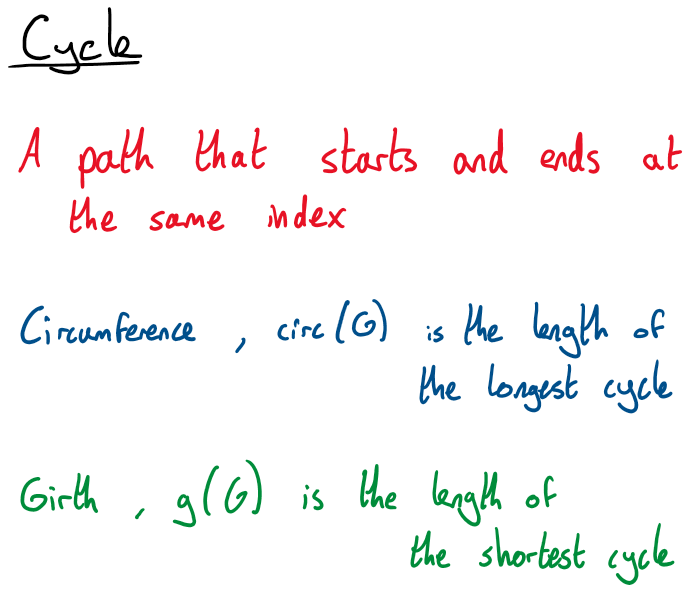 Cycle
A path that starts and ends at
the same index
Circumference, circ(G) is the length of
the longest cycle
Girth, g(G) is the length of
the shortest cycle